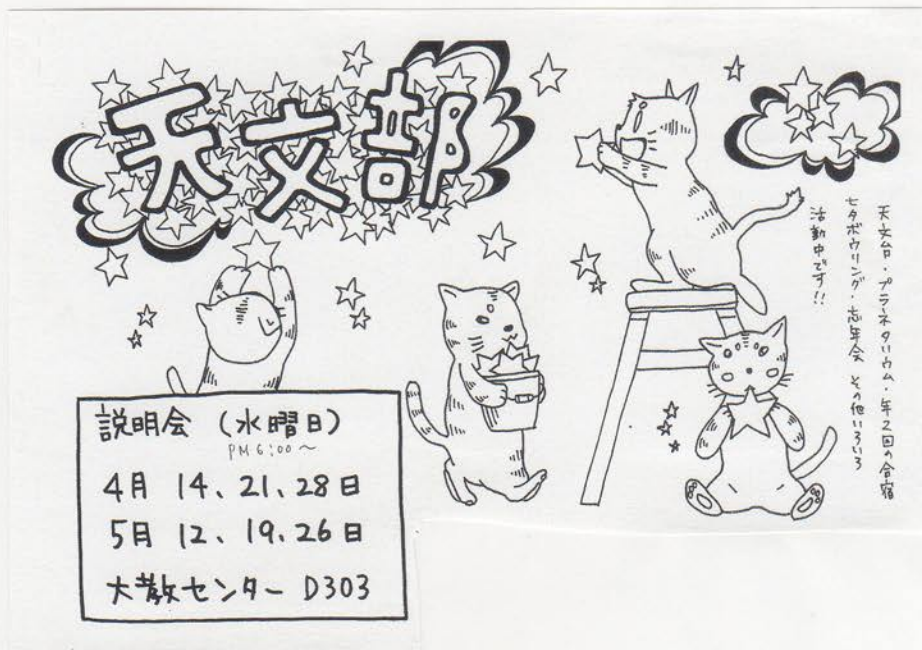 天文部
天文台・プラネタリウム・年2回の合宿
七夕ボウリング・忘年会 その他いろいろ
活動中です!!
説明会 (水曜日)
PM 6:00~
4月 14、21、28日
5月 12、19、26日
大教センター D303